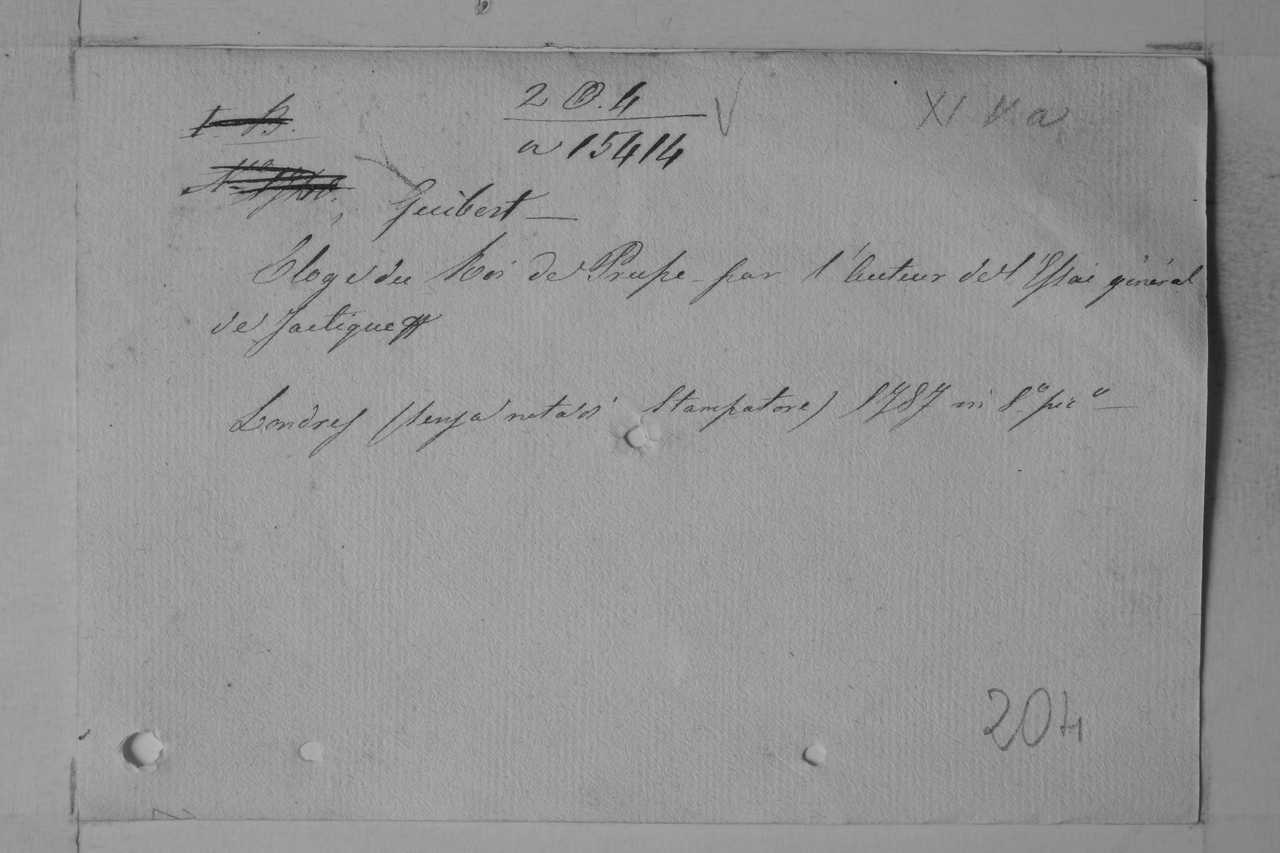 2 O. 4
a 15414
XI V a
Guibert —
Eloge du Roi de Prusse par l'Auteur de l'Essai général
de Tactique
Londres (senza nota di Stampatore) 1787 in 8.º pic.º —
204